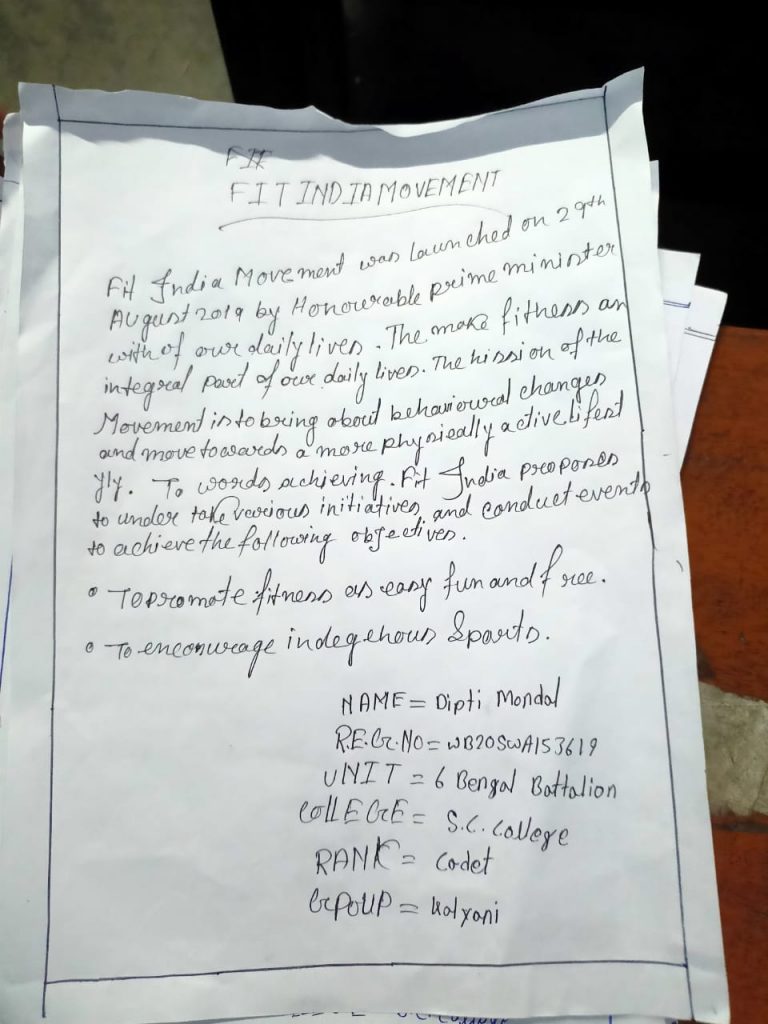 FIT
FIT INDIA MOVEMENT
Fit India Movement was launched on 29th
August 2019 by Honourable prime minister
with of our daily lives. The make fitness an
integral part of our daily lives. The hission of the
Movement is to bring about behavioural changes
and move towards a more physically active lifest
yly. To words achieving. Fit India proposes
to under take various initiatives and conduct events
to achieve the following objectives.
• To promote fitness as easy fun and free.
• To encourage indegehous Sparts.
NAME = Dipti Mondal
REG.NO = WB20SWA153619
UNIT = 6 Bengal Battalion
COllEGE = S.C. College
RANK = Cadet
GROUP = Kalyani